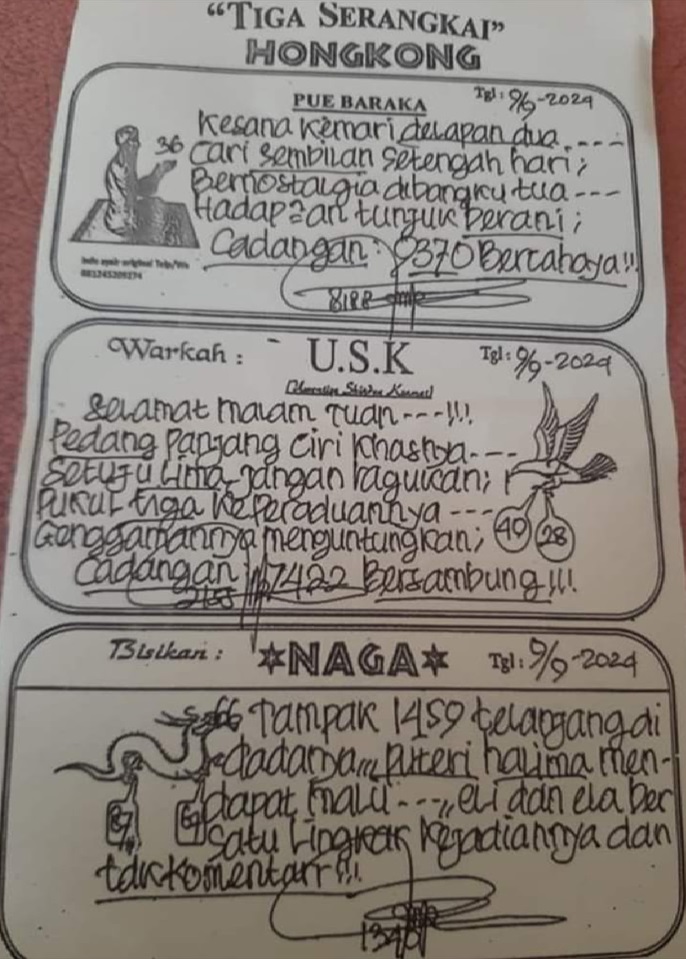 “TIGA SERANGKAI”
HONGKONG
PUE BARAKA
Tgl: 9/9-2024
Kesana Kemari delapan dua ----
36
Cari sembilan setengah hari;
Bernostalgia dibangku tua ---
Hadap an tunjuk berani;
Cadangan: 9370 Bercahaya!!
8188
Warkah:
U.S.K
Tgl: 9/9-2024
Selamat malam Tuan ---!!!
Pedang Panjang Ciri Khasnya ---
Setuju Lima Jangan ragukan;
Pukul tiga Keperaduannya ---
Genggamannya menguntungkan;
40 28
Cadangan: 7422 Bersambung!!!
Bisikan:
NAGA
Tgl: 9/9-2024
66
Tampak 1459 telanjang di
dadanya,,, Puteri halima men-
dapat malu ---,, eli dan ela ber
87
satu Lingkar Kejadiannya dan
tdk komentarr!!!
1340